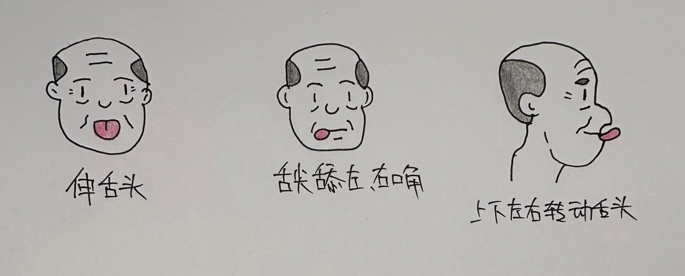 伸舌头
舌尖舔左、右嘴角
上下左右转动舌头